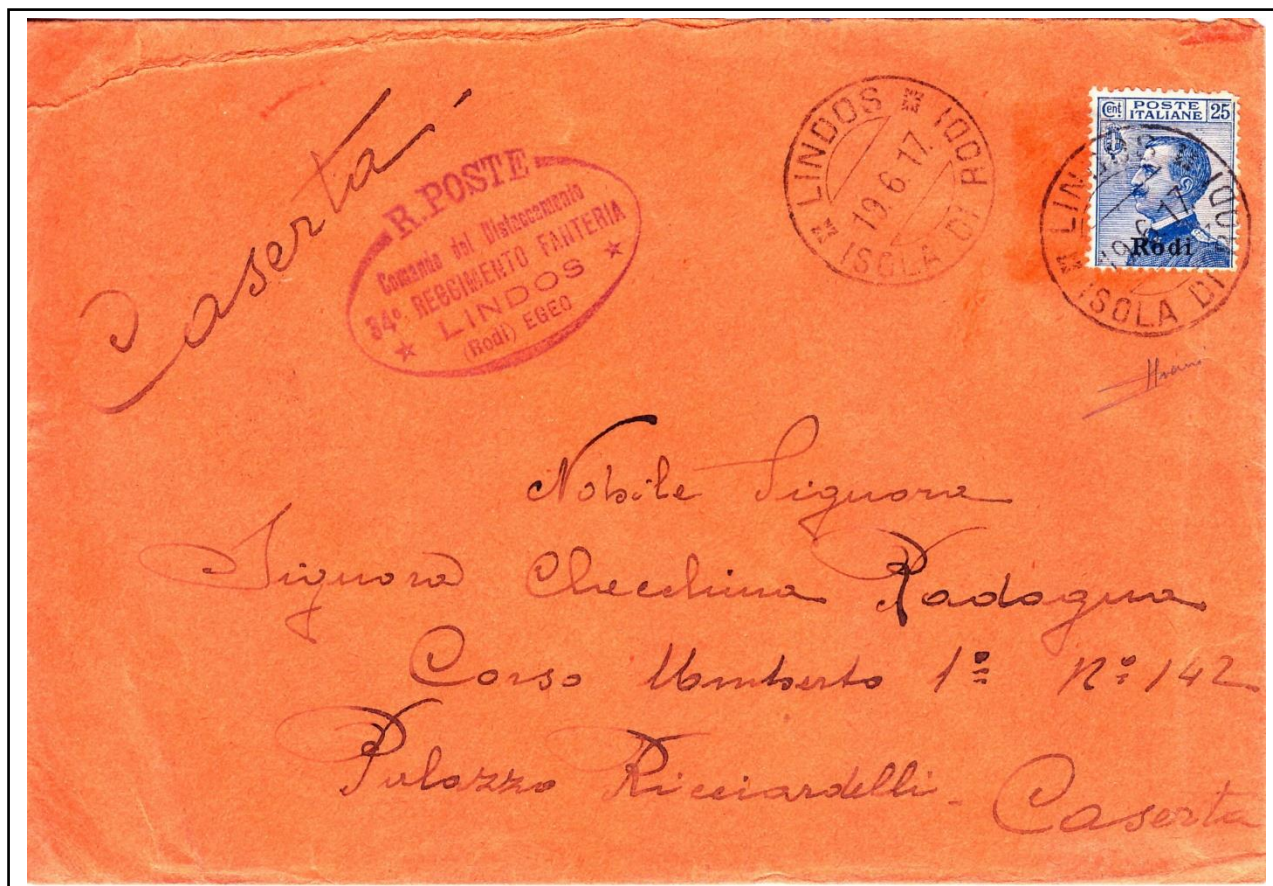 Caserta
R. POSTE
Comando del Distaccamento
34° REGGIMENTO FANTERIA
★ LINDOS ★
(Rodi) EGEO
LINDOS
ISOLA DI RODI
19.6.17
Cent 25
POSTE
ITALIANE
Rodi
LINDOS
ISOLA DI RODI
Nobile Signora
Signora Checchina Radogna
Corso Umberto 1º Nº 142
Palazzo Ricciardelli - Caserta